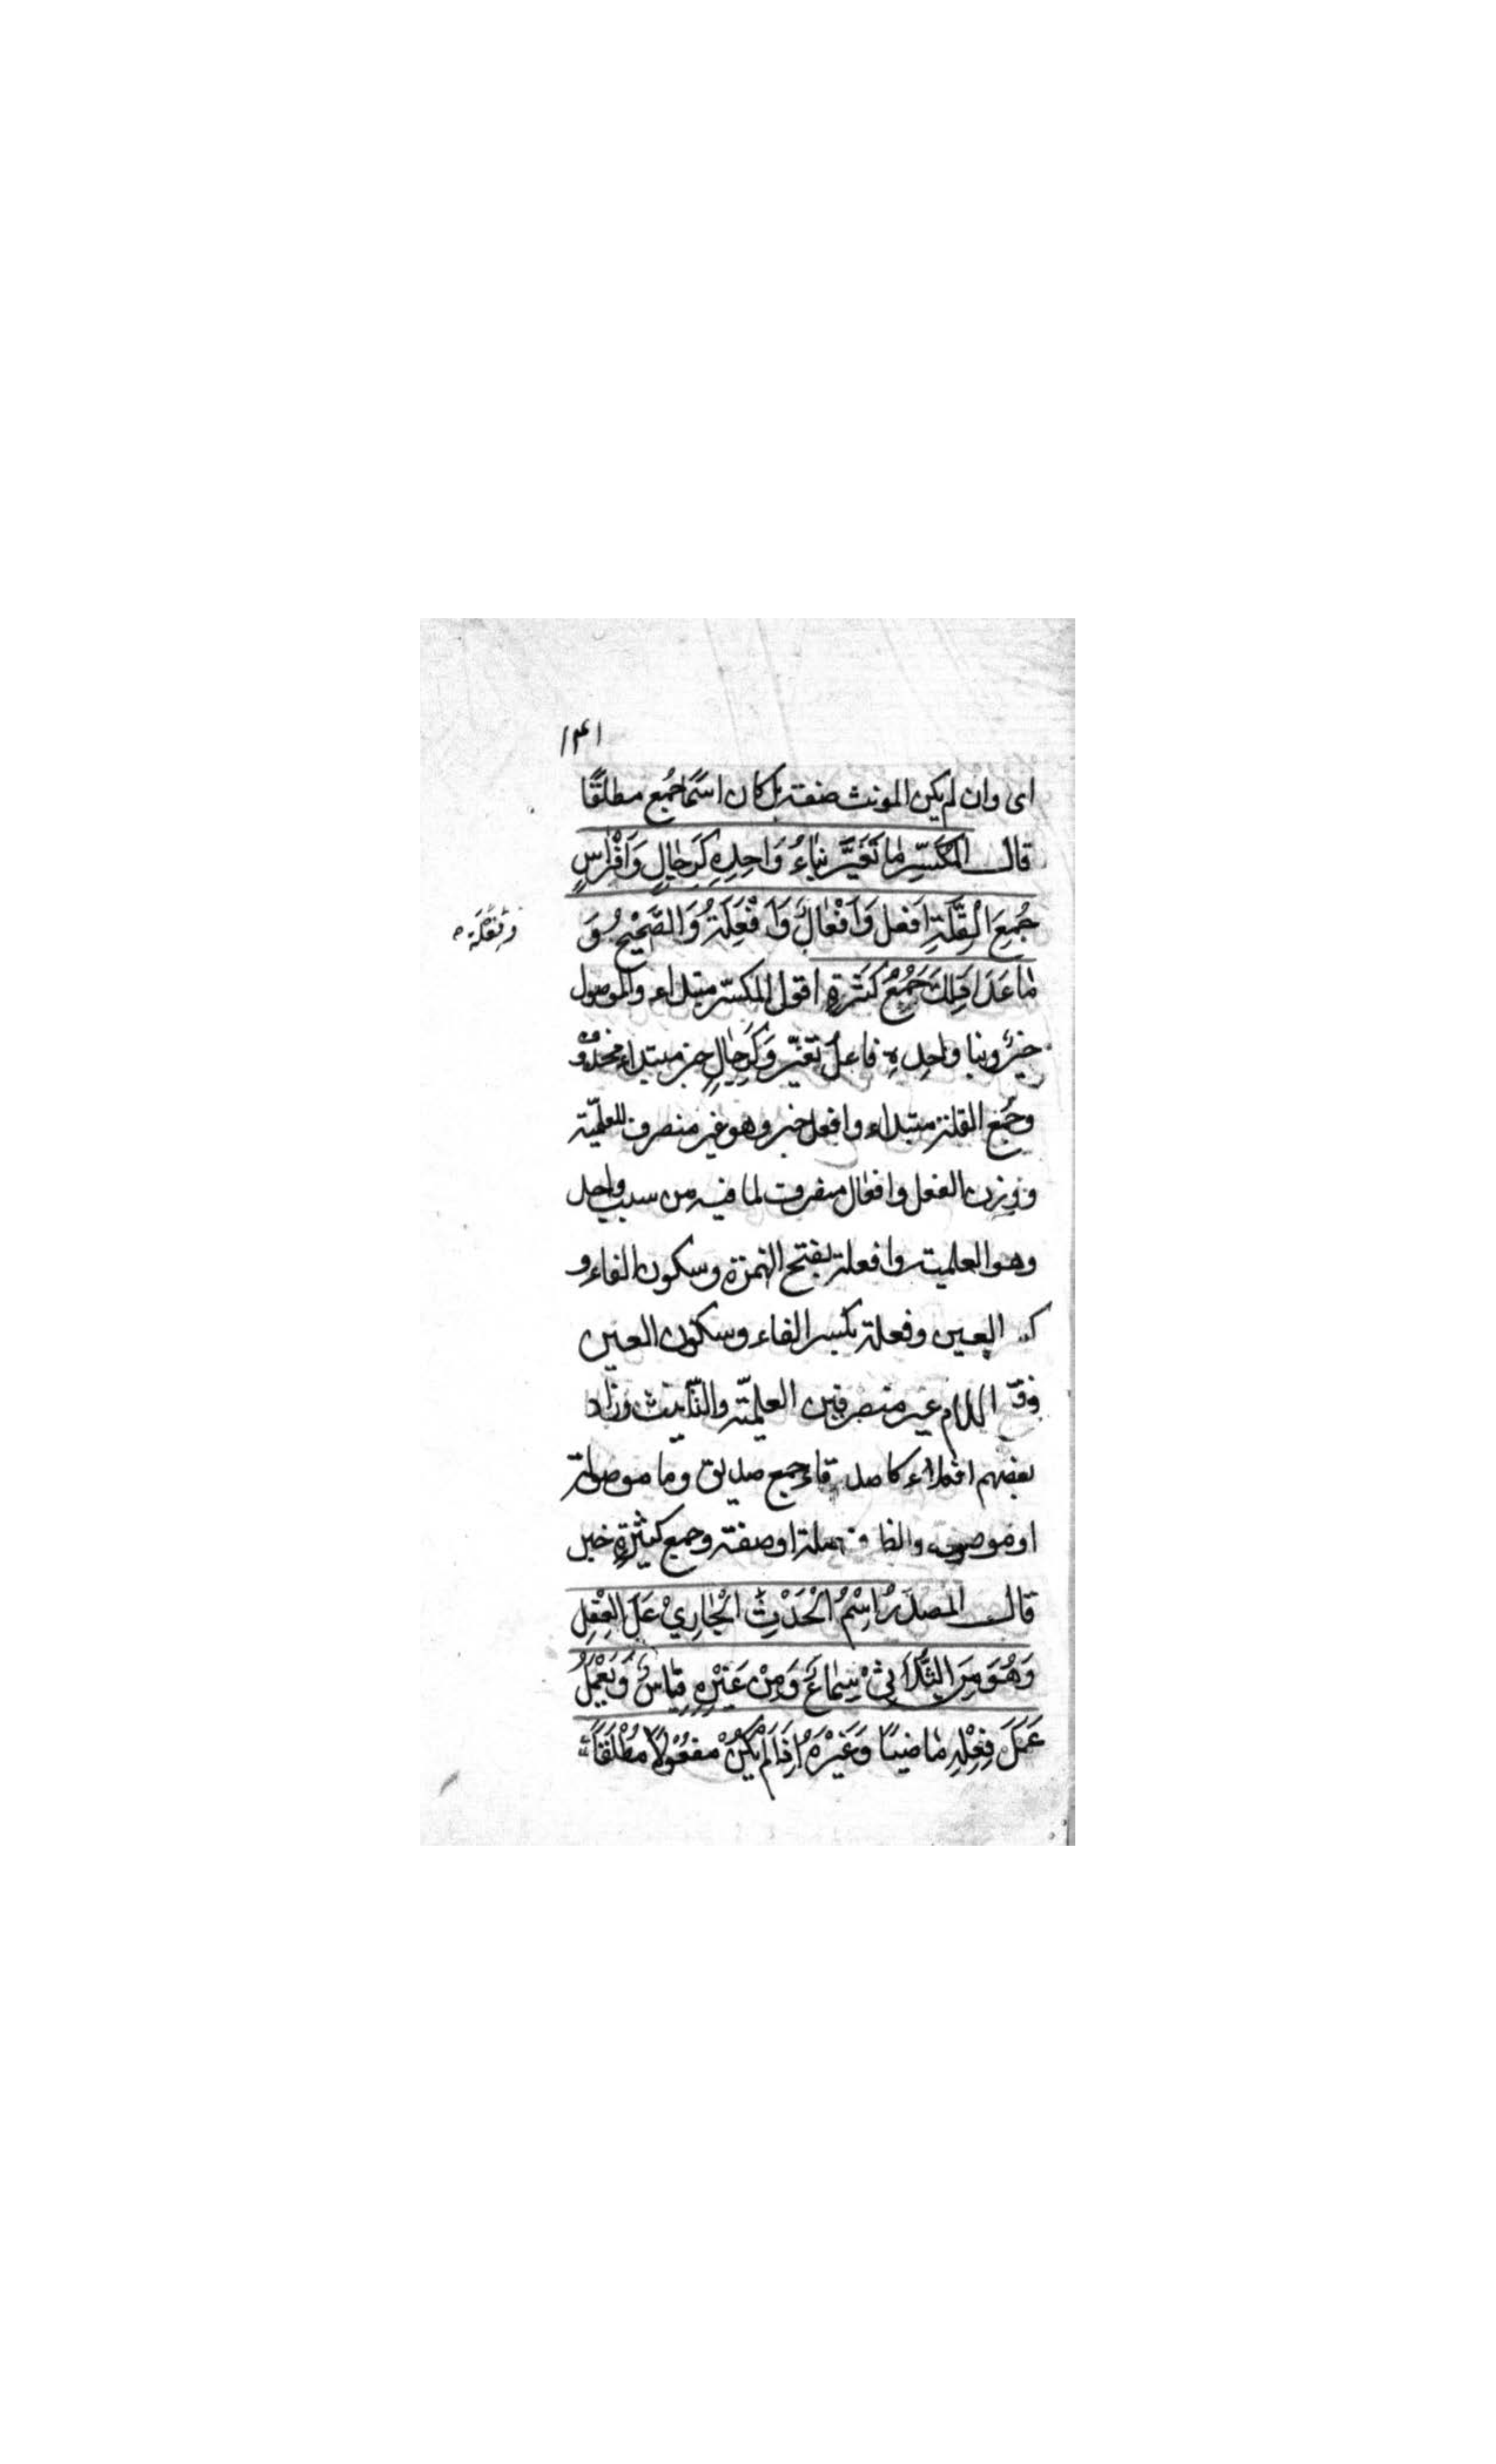 ١٣١
اى وان لم يكن المونث صفته بل كان اسمًا جُمع مطلقًا
قال المُكَسّرِ مٰا تَغَيَّر بنٰاءُ وَاحِدِهِ كَرِجٰالٍ وَاَفْرٰاسٍ
جُمِعَ الْقِلَّةِ اَفعل وَاَفْعٰالٌ وَاَفْعِلَةُ وَالصَّحِيْحُ وَ
وَفِعْلَة
مٰا عَدَا ذٰلِكَ جَمْعُ كَثرَةٍ اقول المكسّر مبتداء والموصول
خبرٌ وبنا واحِدِهِ فاعل تغيّر وَكَرِجٰالٍ خبر مبتداء محذوف
وجُمع القلة مبتداء وافعل خبر وهو غير منصرف للعلميّة
ووزن الفعل وافعال منصرف لما فيه من سبب واحد
وهو العلمية وافعلة بفتح الهمزة وسكون الفاء و
العين وفعلة بكسر الفاء وسكون العين
اللام غير منصرفين العلميّة والتّانيث وزاد
بعضهم افعلاء كاصدقاء جمع صديق وما موصولة
او موصوفه والظرف صلة او صفته وجمع كثيرةٍ خبر
قال المصدَرُ اِسْمُ الْحَدْثِ الْجٰارِيْ عَلَى الفِعْلِ
وَهُوَ مِنَ الثُّلٰاثِىْ سِمٰاعٌ وَمِنْ غَيْرِهِ قِيٰاسٌ وَيَعْمَلُ
عَمَلَ فِعْلِهِ مٰاضِيًا وَغَيْرَهُ اِذَا لَمْ يَكُنْ مَفعُوْلًا مُطْلَقًا